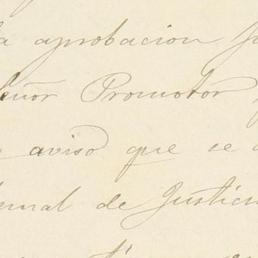 la aprobacion
eñor Promotor
aviso que se
unal de Justici